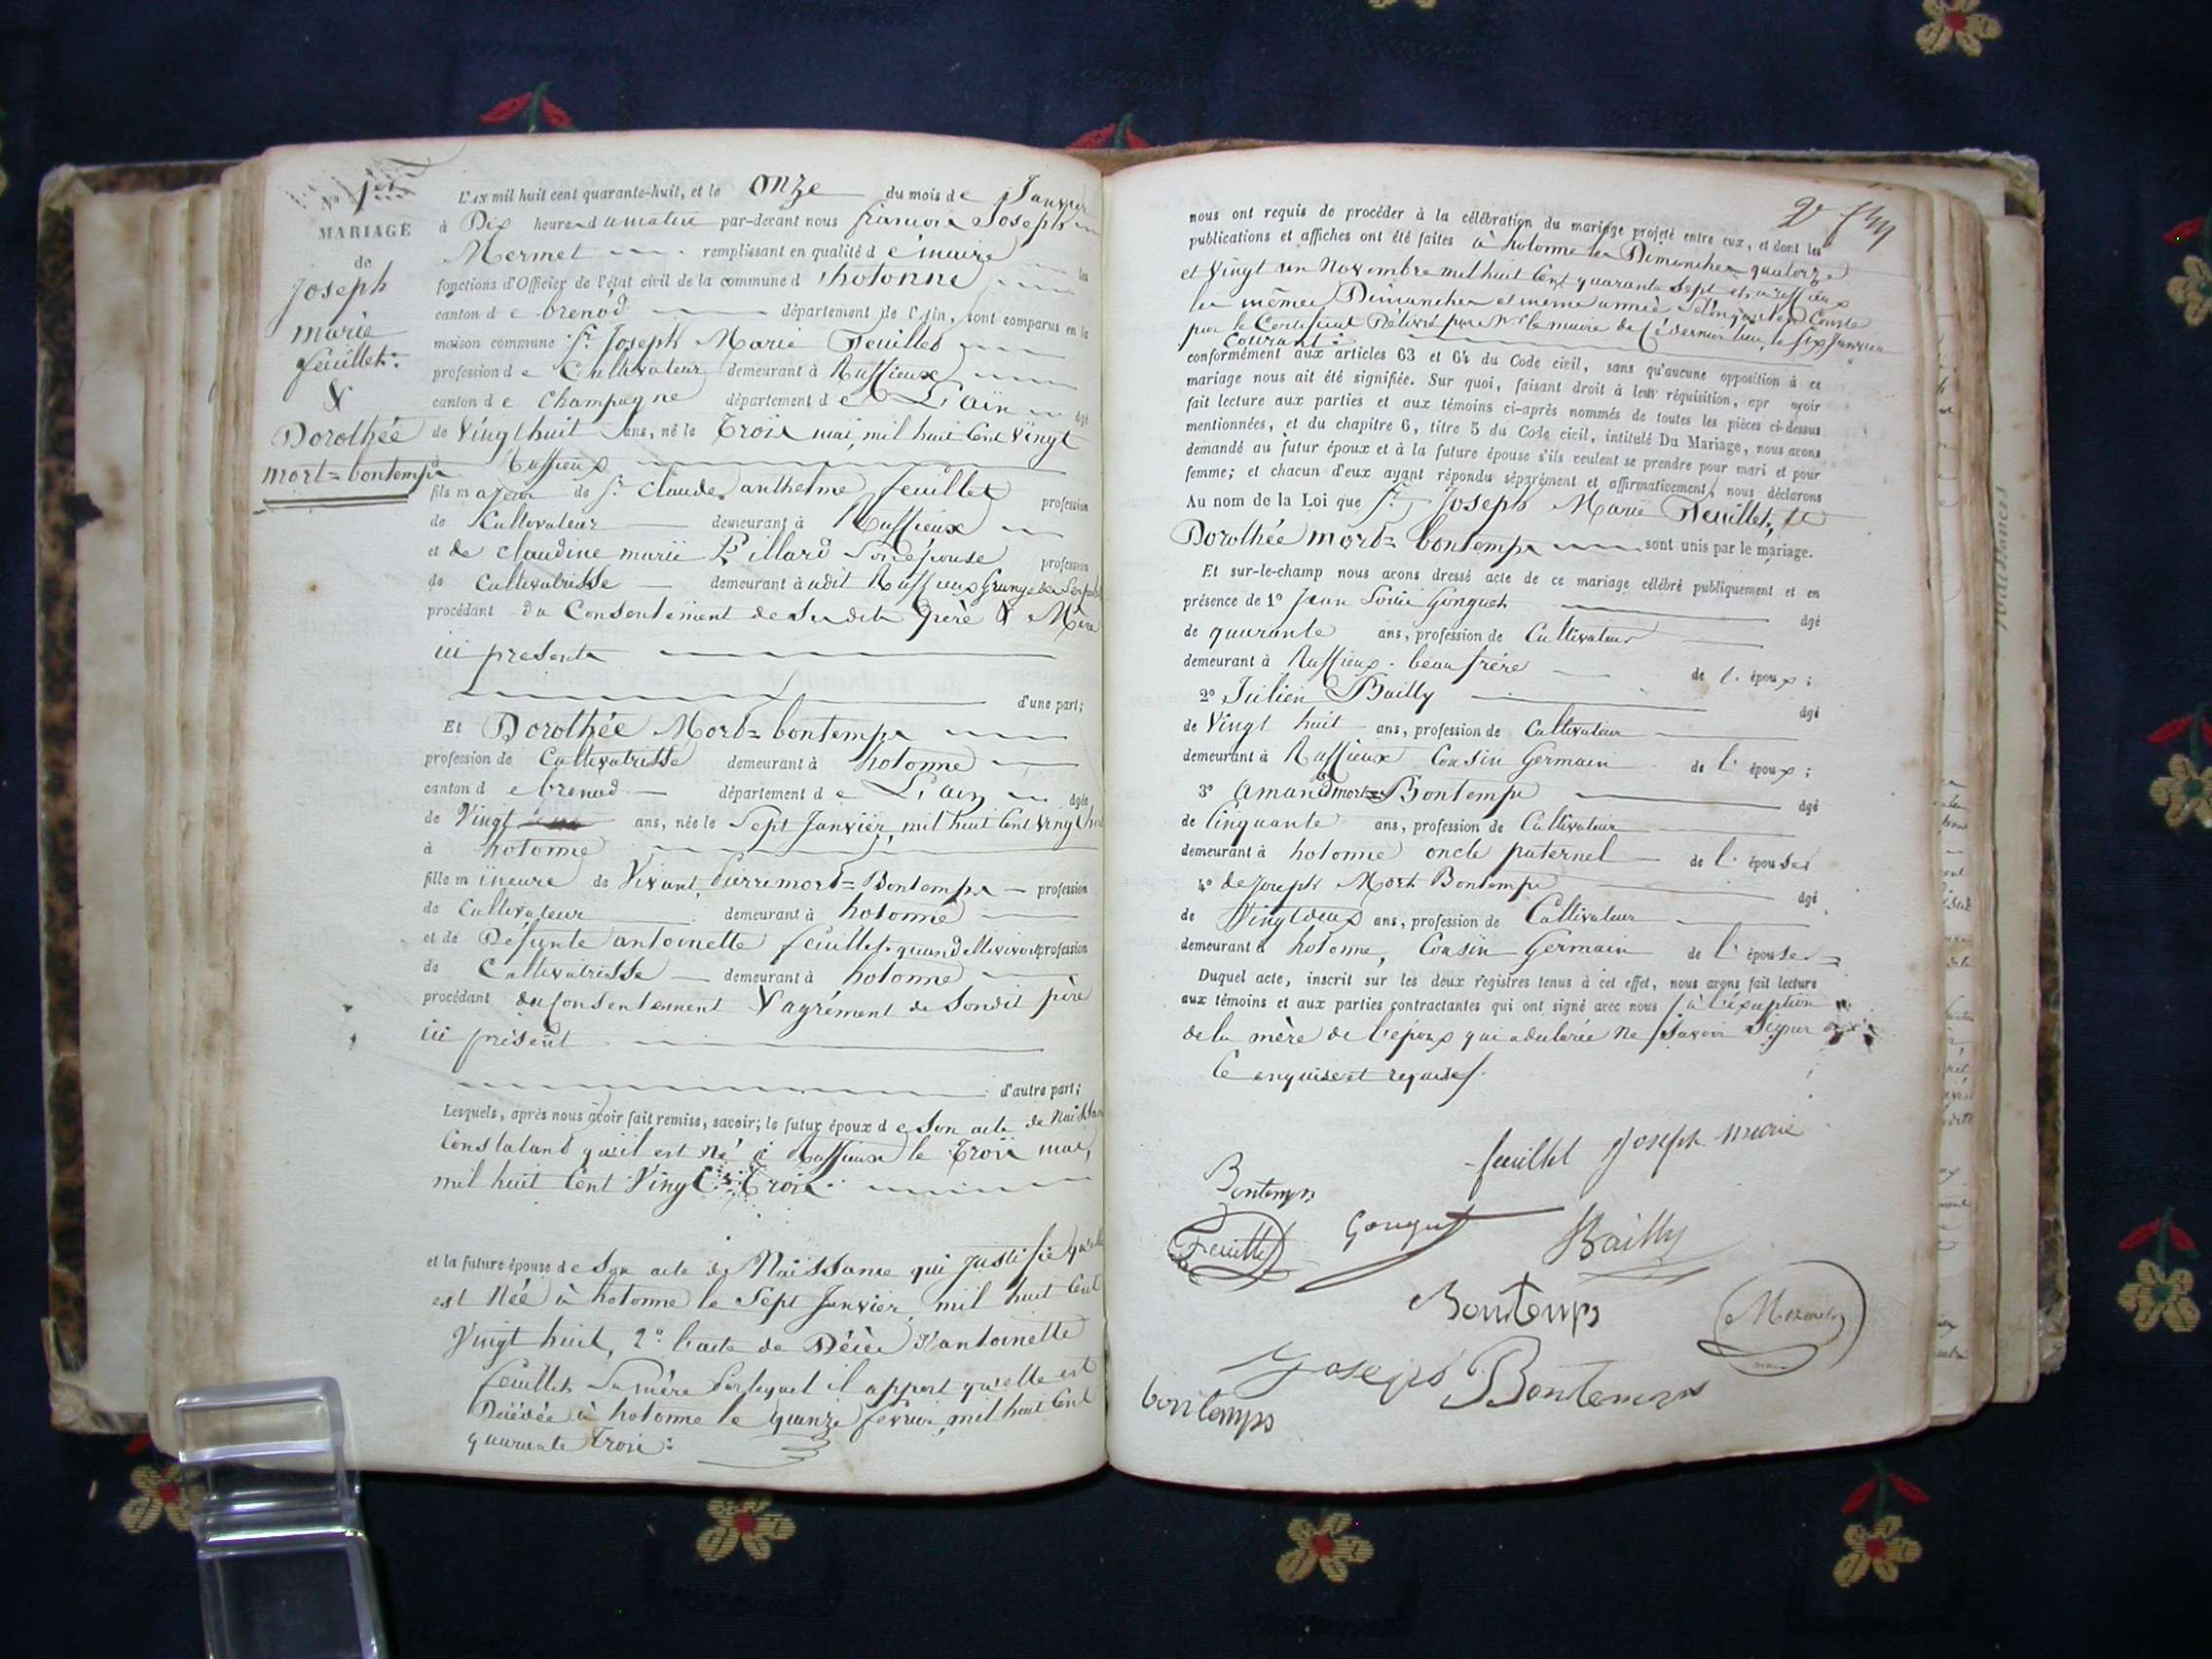 No 1er
MARIAGE
de
Joseph
marie
feuillet:
&
Dorothée
mort=bontemps
L'AN mil huit cent quarante-huit, et le onze du mois de Janvier
à Dix heures du matin par-devant nous francois Joseph
Mermet remplissant en qualité de maire les
fonctions d'Officier de l'état civil de la commune d'hotonne
canton de brenod département de l'Ain, sont comparus en la
maison commune Sr. Joseph Marie Feuillet
profession de Cultivateur demeurant à Ruffieux
canton de Champagne département de L'ain âgé
de Vingt huit ans, né le Trois mai mil huit Cent Vingt
à Ruffieux
fils majeur de Sr. claude anthelme feuillet profession
de Cultivateur demeurant à Ruffieux
et de claudine marie Billard Son épouse profession
de Cultivatrisse demeurant à udit Ruffieux
procédant du Consentement de Susdits père & Mère
ici presents
d'une part;
Et Dorothée Mort=bontemps
profession de Cultivatrisse demeurant à hotonne
canton de brenod département de L'ain âgée
de Vingt ans, née le Sept Janvier mil huit Cent Vingt huit
à hotonne
fille mineure de Vivant pierre mort=Bontemps profession
de Cultivateur demeurant à hotonne
et de Défunte antoinette feuillet quand elle vivoit profession
de Cultivatrisse demeurant à hotonne
procédant du Consentement & agrément de Sondit père
ici présent
d'autre part;
Lesquels, après nous avoir fait remise, savoir; le futur époux de Son acte de Naissance
Constatant qu'il est né à Ruffieux le Trois mai,
mil huit Cent Vingt Trois
et la future épouse de Son acte de Naissance qui Justifie qu'elle
est Née à hotonne le Sept Janvier mil huit Cent
Vingt huit, 2º l'acte de Décès d'antoinette
feuillet Sa mère par lequel il appert qu'elle est
Décédée à hotonne le quinze fevrier mil huit Cent
quarante Trois:
nous ont requis de procéder à la célébration du mariage projeté entre eux, et dont les
publications et affiches ont été faites à hotonne les Dimanches quatorze
et Vingt un Novembre mil huit Cent quarante Sept et à ruffieux
les mêmes Dimanches et meme année
par le Certificat Délivré par Mr le maire de Ce dernier lieu, le Six Janvier
Courant:
conformément aux articles 63 et 64 du Code civil, sans qu'aucune opposition à ce
mariage nous ait été signifiée. Sur quoi, faisant droit à leur réquisition, apr avoir
fait lecture aux parties et aux témoins ci-après nommés de toutes les pièces ci-dessus
mentionnées, et du chapitre 6, titre 5 du Code civil, intitulé Du Mariage, nous avons
demandé au futur époux et à la future épouse s'ils veulent se prendre pour mari et pour
femme; et chacun d'eux ayant répondu séparément et affirmativement, nous déclarons
Au nom de la Loi que Sr. Joseph Marie Feuillet, et
Dorothée mort=bontemps sont unis par le mariage.
Et sur-le-champ nous avons dressé acte de ce mariage célébré publiquement et en
présence de 1º Jean Gonguet âgé
de quarante ans, profession de Cultivateur
demeurant à Ruffieux beau frère de l'époux;
2º Julien Bailly âgé
de Vingt huit ans, profession de Cultivateur
demeurant à Ruffieux Cousin Germain de l'époux;
3º Amand mort=Bontemps âgé
de Cinquante ans, profession de Cultivateur
demeurant à hotonne oncle paternel de l'épouse
4º de Joseph Mort Bontemps âgé
de Vingt deux ans, profession de Cultivateur
demeurant à hotonne, Cousin Germain de l'épouse
Duquel acte, inscrit sur les deux registres tenus à cet effet, nous avons fait lecture
aux témoins et aux parties contractantes qui ont signé avec nous à l'éxception
de la mère de l'époux qui a declarée ne Savoir Signer
Ce enquise et requise.
feuillet Joseph marie
Bontemps
Feuillet
Gonguet
Bailly
Bontemps
Mermet
maire
Joseph Bontemps
bontemps